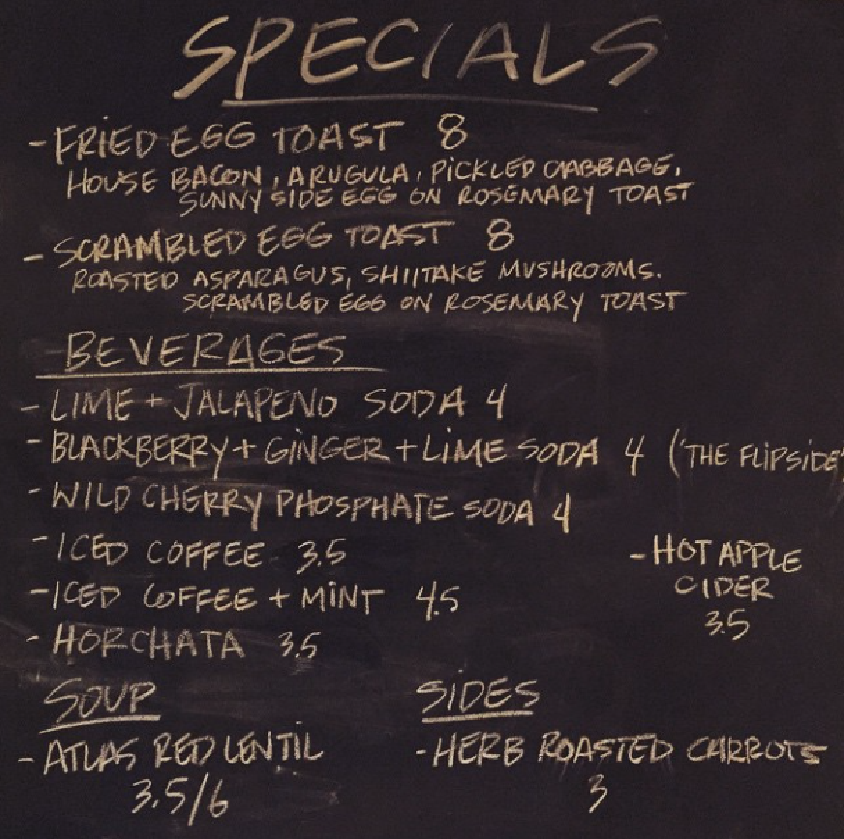 SPECIALS
- FRIED EGG TOAST 8
HOUSE BACON, ARUGULA, PICKLED CABBAGE,
SUNNY SIDE EGG ON ROSEMARY TOAST
- SCRAMBLED EGG TOAST 8
ROASTED ASPARAGUS, SHIITAKE MUSHROOMS.
SCRAMBLED EGG ON ROSEMARY TOAST
BEVERAGES
- LIME + JALAPENO SODA 4
- BLACKBERRY + GINGER + LIME SODA 4 ("THE FLIPSIDE"
- WILD CHERRY PHOSPHATE SODA 4
- ICED COFFEE 3.5
- ICED COFFEE + MINT 4.5
- HORCHATA 3.5
- HOT APPLE
CIDER
3.5
SOUP
- ATLAS RED LENTIL
3.5/6
SIDES
- HERB ROASTED CARROTS
3